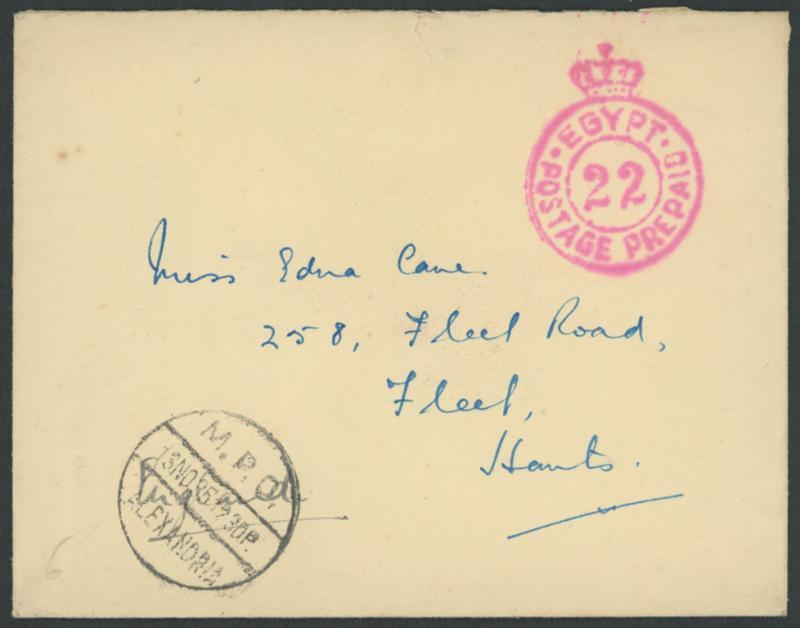 EGYPT
22
POSTAGE PREPAID
Miss Edna Cane.
258, Fleet Road,
Fleet,
Hants.
M.P.O.
England
ALEXANDRIA
6